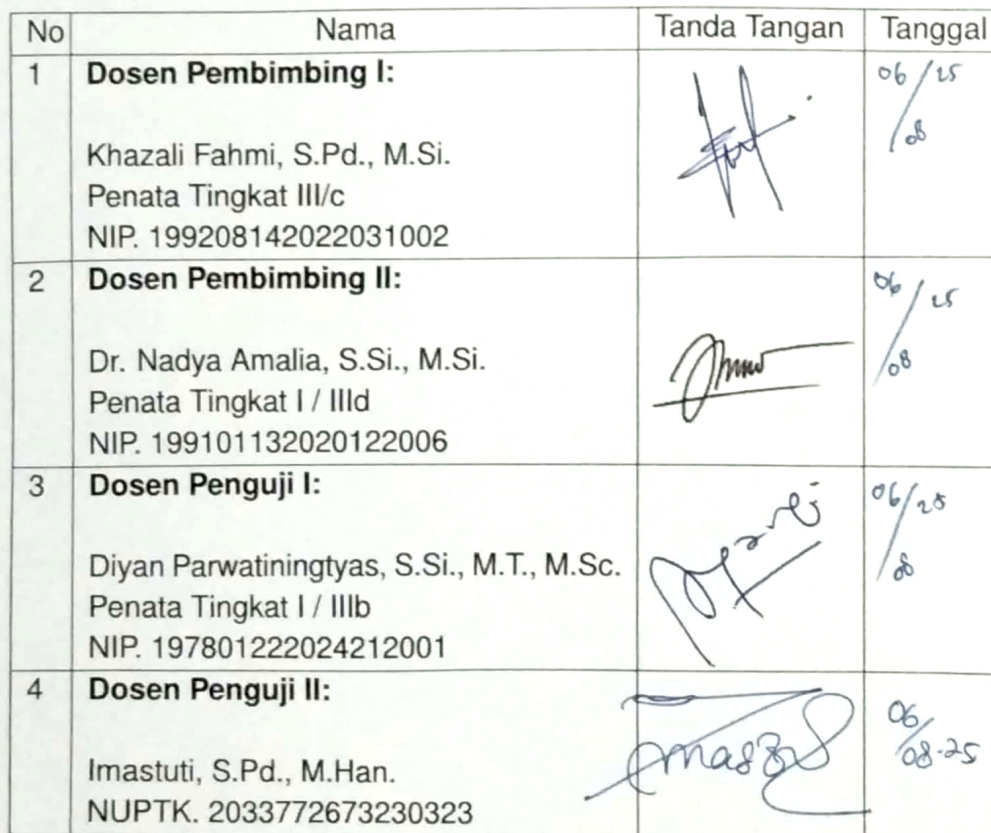 No Nama Tanda Tangan Tanggal
1 Dosen Pembimbing I: 06/08 25
Khazali Fahmi, S.Pd., M.Si.
Penata Tingkat III/c
NIP. 199208142022031002
2 Dosen Pembimbing II: 06/08 25
Dr. Nadya Amalia, S.Si., M.Si.
Penata Tingkat I / IIId
NIP. 199101132020122006
3 Dosen Penguji I: 06/08 25
Diyan Parwatiningtyas, S.Si., M.T., M.Sc.
Penata Tingkat I / IIIb
NIP. 197801222024212001
4 Dosen Penguji II: 06/08-25
Imastuti, S.Pd., M.Han.
NUPTK. 2033772673230323